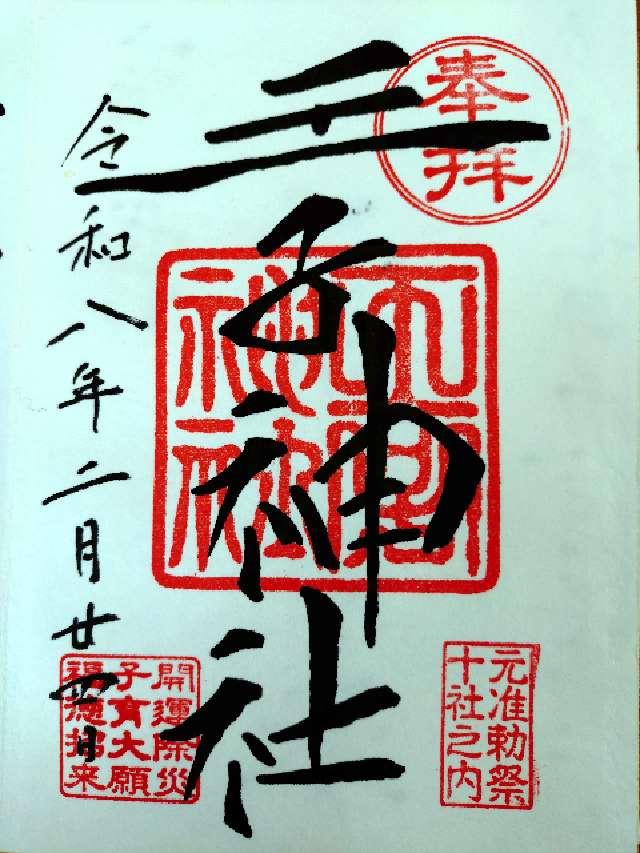 奉拝
王子神社
令和八年二月廿四日
神社
元准勅祭
十社之内
開運除災
子育大願
福徳招来